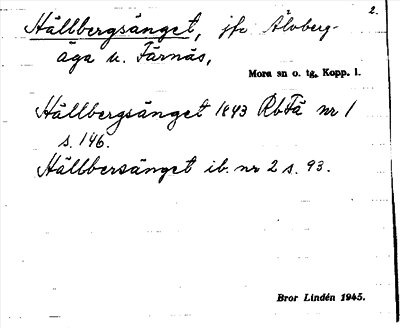 2.
Hållbergsänget, jfr Ålvberg-
äga u. Färnäs,
Mora sn o. tg. Kopp. l.
Hållbergsänget 1843 RbFä nr 1
s. 146.
Hållbersänget ib. nr 2 s. 93.
Bror Lindén 1945.